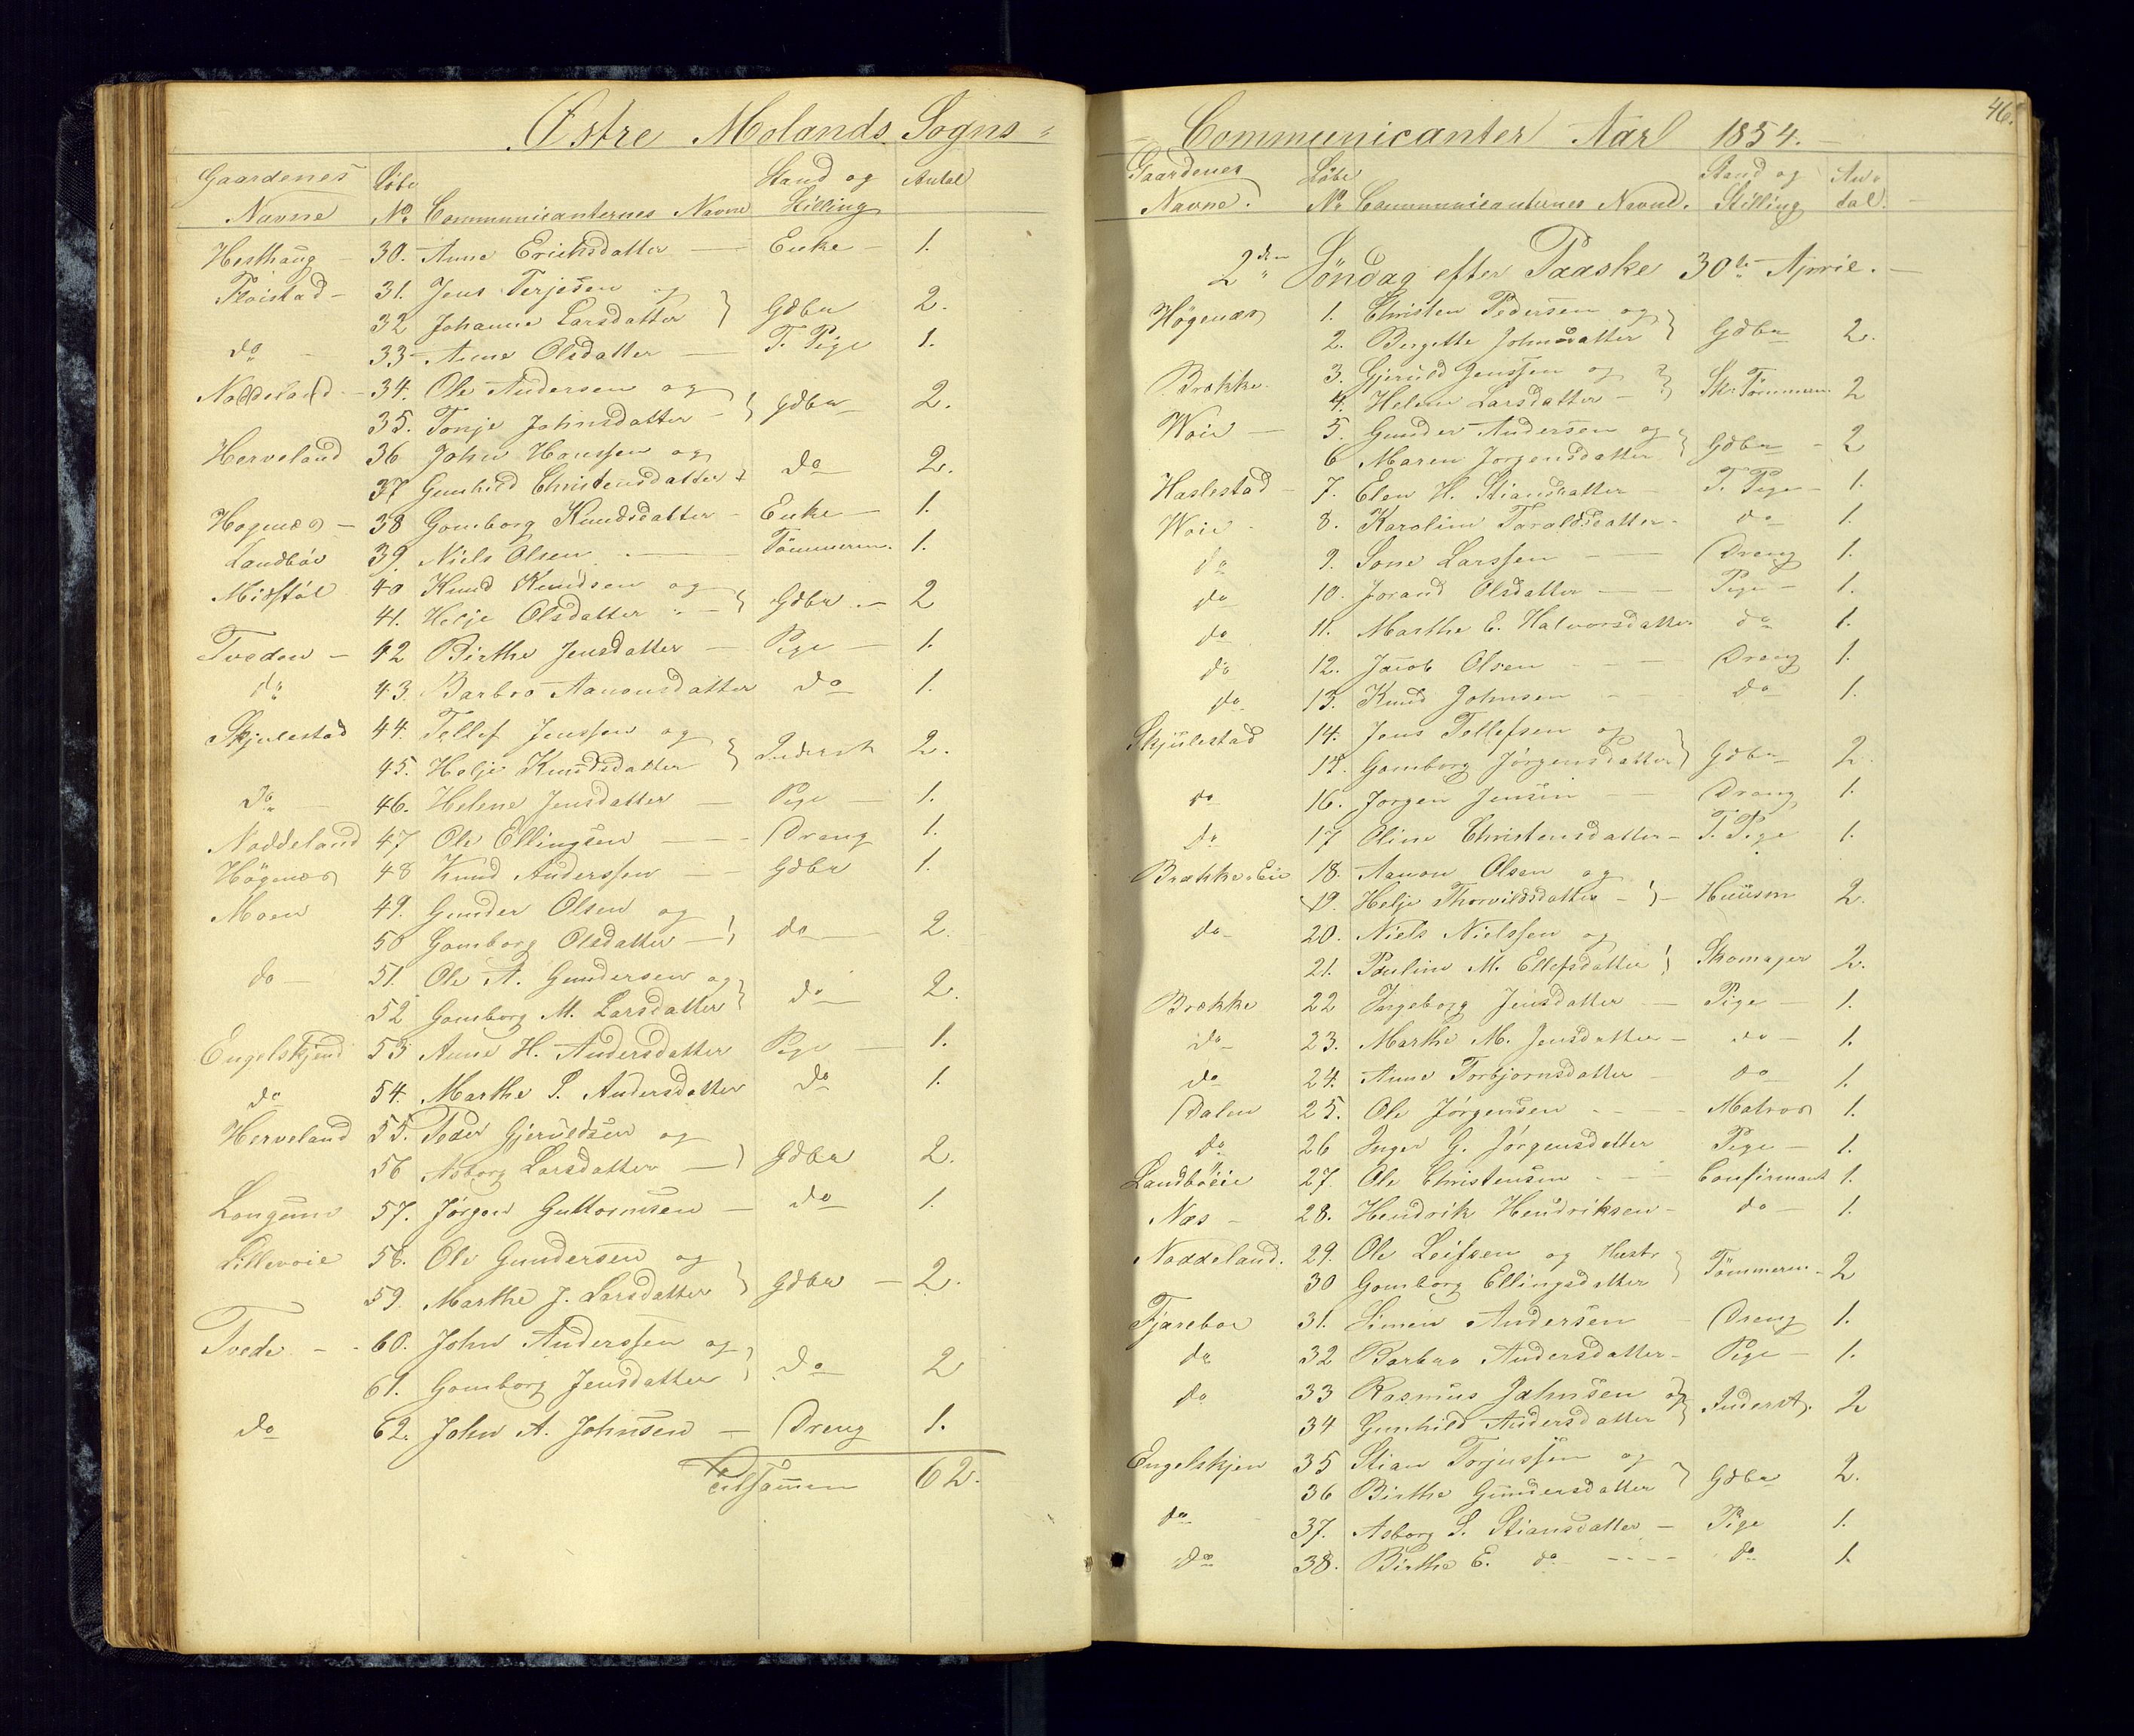 Østre Molands Sogns
Gaardenes Løbe Stand og Antal
Navne No Communicanternes Navne Stilling
Hesthaug 30. Anne Erichsdatter Enke 1.
Fløistad 31. Jens Terjesen og
32 Johanne Larsdatter Gdbr 2.
do 33 Anne Olsdatter T. Pige 1.
Noddeland 34. Ole Andersen og
35. Tonje Johnsdatter Gdbr 2.
Herveland 36 John Hanssen og
37 Gunhild Christensdatter do 2.
Høgenæs 38 Gomborg Knudsdatter Enke 1.
Landbøe 39. Niels Olsen Tømmerm. 1.
Midstøl 40 Knud Knudsen og
41. Helje Olsdatter Gdbr 2
Tveden 42 Birthe Jensdatter Pige 1.
do 43 Barbro Aanonsdatter do 1.
Skjulestad 44. Tellef Jenssen og
45. Helje Knudsdatter Inderst 2.
do 46. Helene Jensdatter Pige 1.
Noddeland 47 Ole Ellingsen Dreng 1.
Høgenæs 48 Knud Anderssen Gdbr 1.
Moen 49. Gunder Olsen og
50 Gomborg Olsdatter do 2.
do 51. Ole A. Gundersen og
52 Gomborg M. Larsdatter do 2.
Engelskjend 53 Anne H. Andersdatter Pige 1.
do 54. Marthe S. Andersdatter do 1.
Herveland 55. Peder Gjeruldsen og
56 Asborg Larsdatter Gdbr 2.
Longum 57. Jørgen Guttormsen do 1.
Lillevoie 58. Ole Gundersen og
59. Marthe J. Larsdatter Gdbr 2.
Tvede 60. John Anderssen og
61. Gomborg Jensdatter do 2
do 62. John A. Johnsen Dreng 1.
Tilsammen 62.
46.
Communicanter Aar 1854.
Gaardenes Løbe Stand og An-
Navne. No Communicanternes Navne. Stilling tal.
2den Søndag efter Paaske 30te April.
Høgenæs 1. Christen Pedersen og
2. Bergette Johnsdatter Gdbr 2.
Brække 3. Gjeruld Jenssen og
4. Helene Larsdatter Sk. Tømmerm 2
Woie 5. Gunder Andersen og
6 Maren Jørgensdatter Gdbr 2
Haslestad 7. Elen H. Stiansdatter T. Pige 1.
Woie 8. Karoline Taraldsdatter do 1.
do 9. Sone Larssen Dreng 1.
do 10. Jorand Olsdatter Pige 1.
do 11. Marthe E. Halvorsdatter do 1.
do 12. Jacob Olsen Dreng 1.
do 13. Knud Johnsen do 1.
Skjulestad 14. Jens Tellefsen og
15. Gomborg Jørgensdatter Gdbr 2.
do 16. Jørgen Jensen Dreng 1.
do 17 Oline Christensdatter T. Pige 1.
Brække Eie 18. Aanon Olsen og
19. Helje Thorvildsdatter Huusm 2.
do 20. Niels Nielssen og
21. Pauline M. Ellefsdatter Skomager 2.
Brække 22 Ingeborg Jensdatter Pige 1.
do 23. Marthe M. Jensdatter do 1.
do 24. Anne Torbjornsdatter do 1.
Dalen 25. Ole Jørgensen Matros 1.
do 26 Inger G. Jørgensdatter Pige 1.
Landbøeie 27. Ole Christensen Confirmant 1.
Næs 28. Hendrik Hendriksen do 1.
Noddeland. 29. Ole Leifsen og Hustr
30 Gomborg Ellingsdatter Tømmerm 2
Fjæreboe 31. Simen Andersen Dreng 1.
do 32 Barbra Andersdatter Pige 1.
do 33 Rasmus Johnsen og
34 Gunhild Andersdatter Inderst. 2
Engelskjen 35 Stian Torjussen og
36 Birthe Gundersdatter Gdbr 2.
do 37. Asborg S. Stiansdatter Pige 1.
do 38. Birthe E. do do 1.